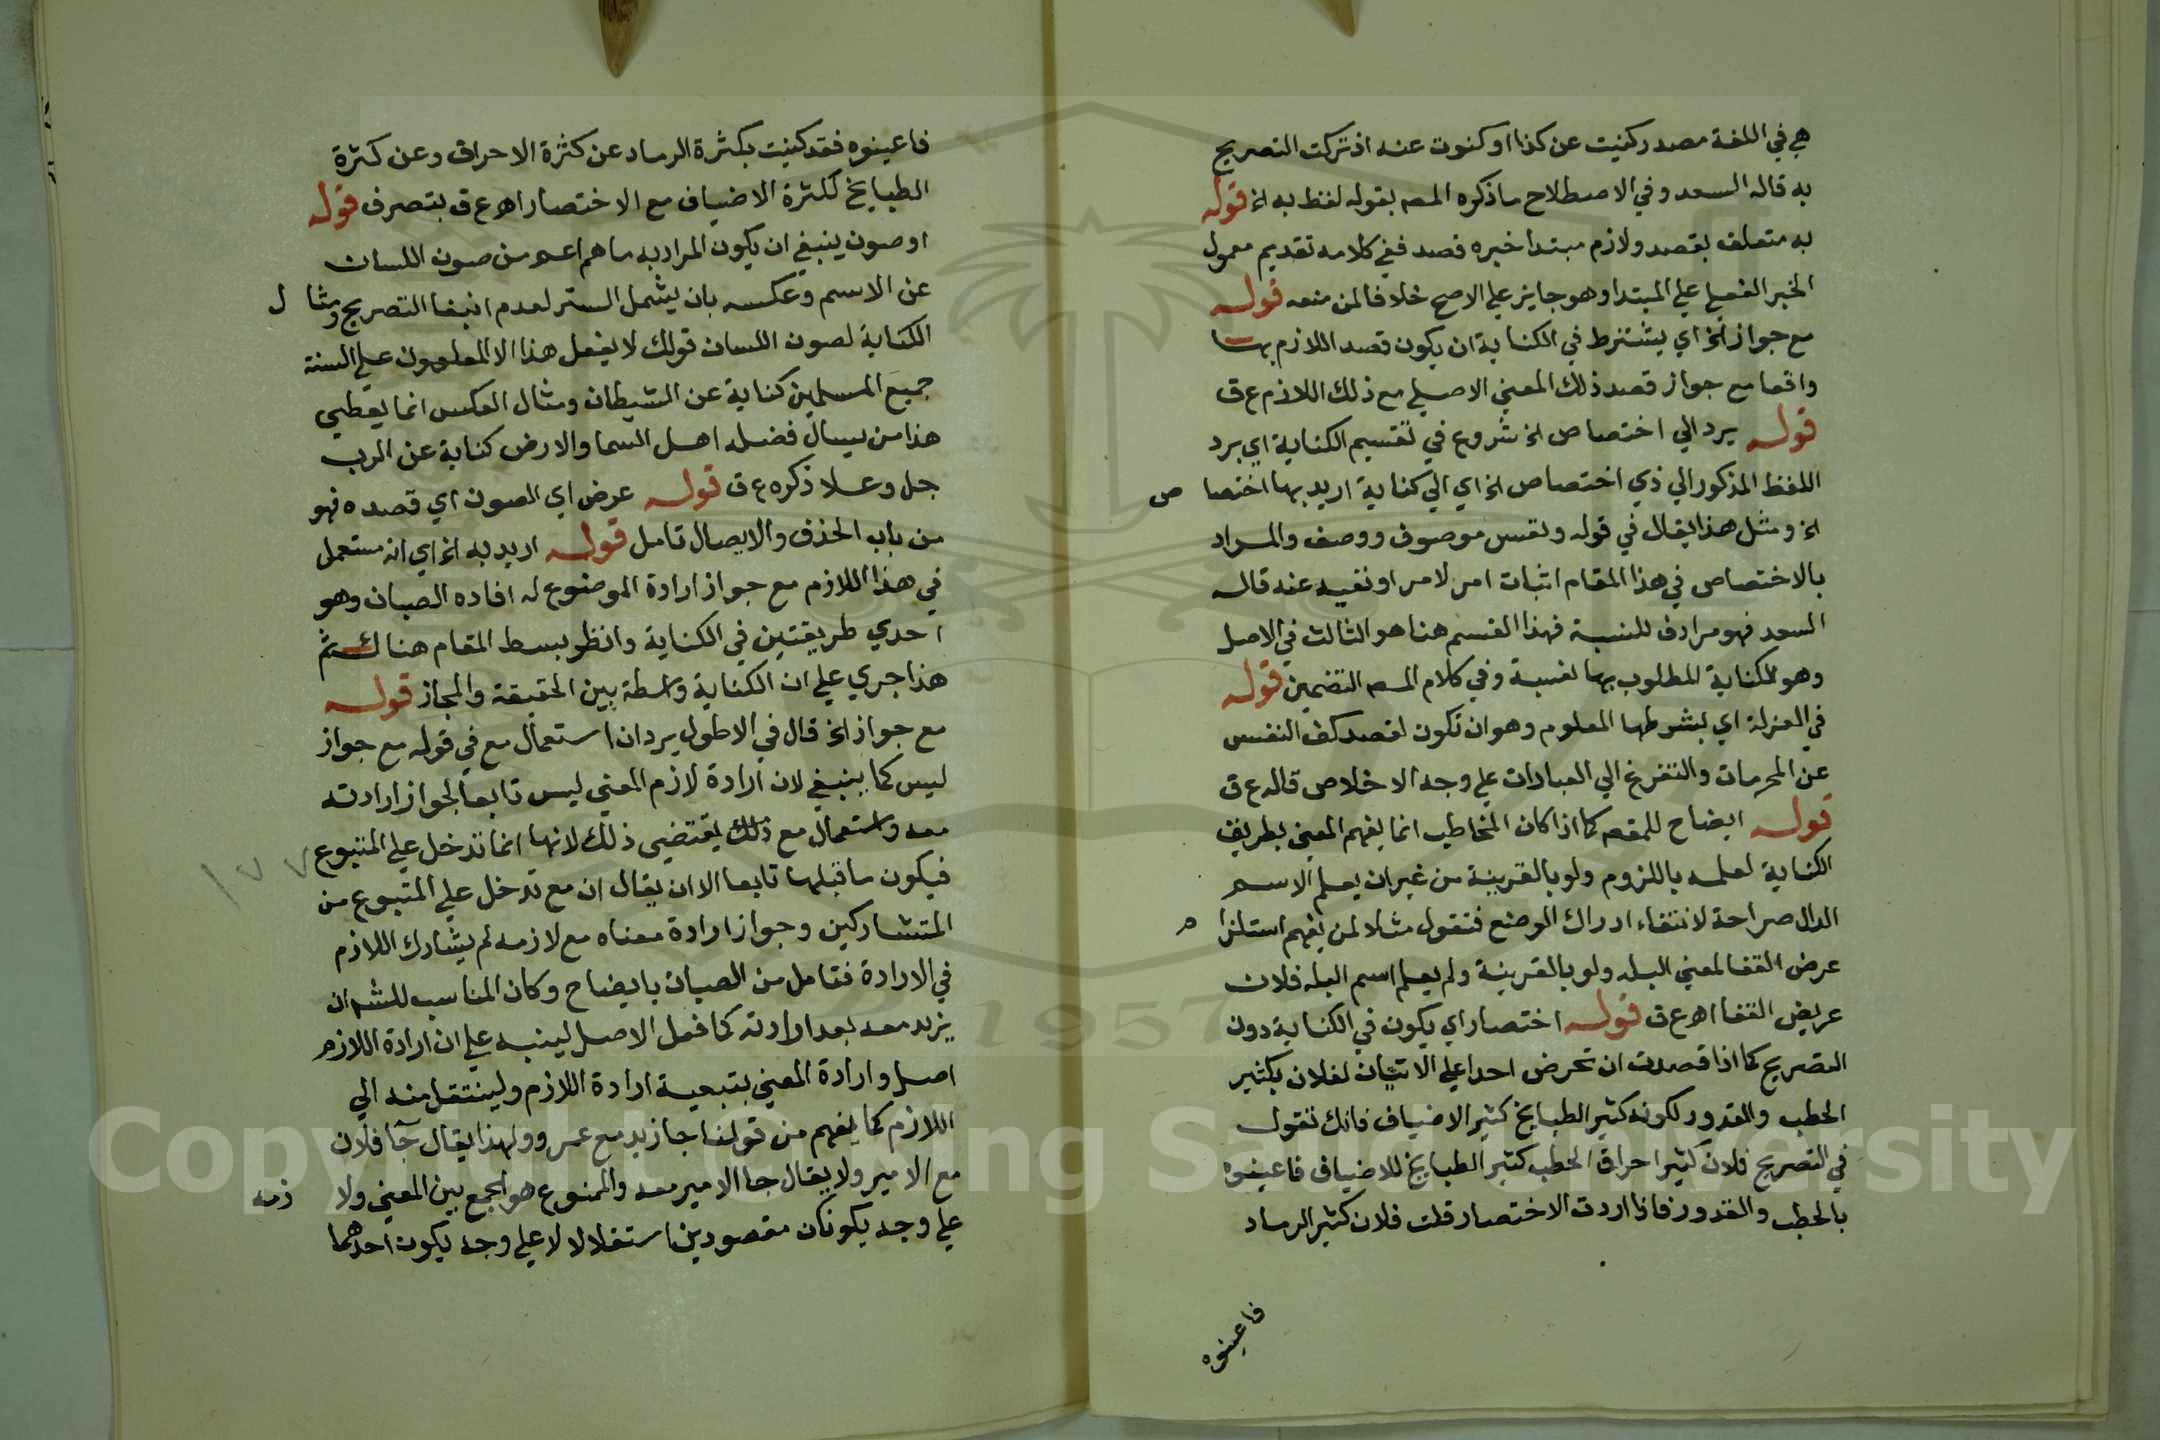 هي في اللغة مصدر كنيت عن كذا او كنوت عنه اذ تركت التصريح
به قاله السعد وفي الاصطلاح ما ذكره المصه بقوله لفظ به اخ قوله
به متعلق بقصد ولازم مبتدا خبره قصد ففي كلامه تقديم معمول
الخبر الفعلي علي المبتدا وهو جايز علي الاصح خلافا لمن منعه قوله
مع جواز اخ اي يشترط في الكناية ان يكون قصد اللازم بها
واقعا مع جواز قصد ذلك المعني الاصلي مع ذلك اللازم ع ق
قوله يرد الي اختصاص اخ شروع في تقسيم الكناية اي يرد
اللفظ المذكور الي ذي اختصاص اخ اي الي كناية اريد بها اختصا ص
اخ ومثل هذا يقال في قوله ونفس موصوف ووصف والمراد
بالاختصاص في هذا المقام اثبات امر لامر او نفيه عنه قاله
السعد فهو مرادف للنسبة فهذا القسم هنا هو الثالث في الاصل
وهو الكناية المطلوب بها نسبة وفي كلام المصه التضمين قوله
في العزلة اي بشرطها المعلوم وهو ان تكون لقصد كف النفس
عن المحرمات والتفرغ الي العبادات علي وجه الاخلاص قاله ع ق
قوله ايضاح للمقصه كما اذا كان المخاطب انما يفهم المعني بطريق
الكناية لعلمه باللزوم ولو بالقرينة من غير ان يعلم الاسم
الدال صراحة لانتفاء ادراك الوضع فتقول مثلا لمن يفهم استلزا م
عرض القفا لمعني البله ولو بالقرينة ولم يعلم اسم البله فلان
عريض القفا اهـ ع ق قوله اختصار اي يكون في الكناية دون
التصريح كما اذا قصدت ان تحرض احدا علي الاتيان لفلان بكثير
الحطب والقدور لكونه كثير الطبايخ كثير الاضياف فانك تقول
في التصريح فلان كثير احراق الحطب كثير الطبايخ للاضياف فاعينوه
بالحطب والقدور فاذا اردت الاختصار قلت فلان كثير الرماد
فاعينوه
فاعينوه فقد كنيت بكثرة الرماد عن كثرة الاحراق وعن كثرة
الطبايخ لكثرة الاضياف مع الاختصار اهـ ع ق بتصرف قوله
او صون ينبغي ان يكون المراد به ما هم اعم من صون اللسان
عن الاسم وعكسه بان يشمل الستر لعدم انبغا التصريح ومثا ل
الكناية لصون اللسان قولك لا يفعل هذا الا الملعون علي السنة
جميع المسلمين كناية عن الشيطان ومثال العكس انما يعطي
هذا من يسال فضله اهل السما والارض كناية عن الرب
جل وعلا ذكره ع ق قوله عرض اي الصون اي قصده فهو
من باب الحذف والايصال تامل قوله اريد به اخ اي انه مستعمل
في هذا اللازم مع جواز ارادة الموضوع له افاده الصبان وهو
احدي طريقتين في الكناية وانظر بسط المقام هناك ثم
هذا جري علي ان الكناية واسطة بين الحقيقة والمجاز قوله
مع جواز اخ قال في الاطول يرد ان استعمال مع في قوله مع جواز
ليس كما ينبغي لان ارادة لازم المعني ليس تابعا لجواز ارادته
معه واستعمال مع ذلك يقتضي ذلك لانها انما تدخل علي المتبوع
فيكون ما قبلها تابعا الا ان يقال ان مع تدخل علي المتبوع من
المتشاركين وجواز ارادة معناه مع لازمه لم يشارك اللازم
في الارادة فتامل من الصبان بايضاح وكان المناسب للشه ان
يزيد معه بعد ارادته كما فعل الاصل لينبه علي ان ارادة اللازم
اصل وارادة المعني بتبعية ارادة اللازم ولينتقل منه الي
اللازم كما يفهم من قولنا جا زيد مع عمرو ولهذا يقال جآ فلان
مع الامير ولا يقال جا الامير معه والممنوع هو الجمع بين المعني ولا زمه
علي وجه يكونان مقصودين استقلالا لا علي وجه يكون احدهما
١٧٧
Copyright © King Saud University
1957